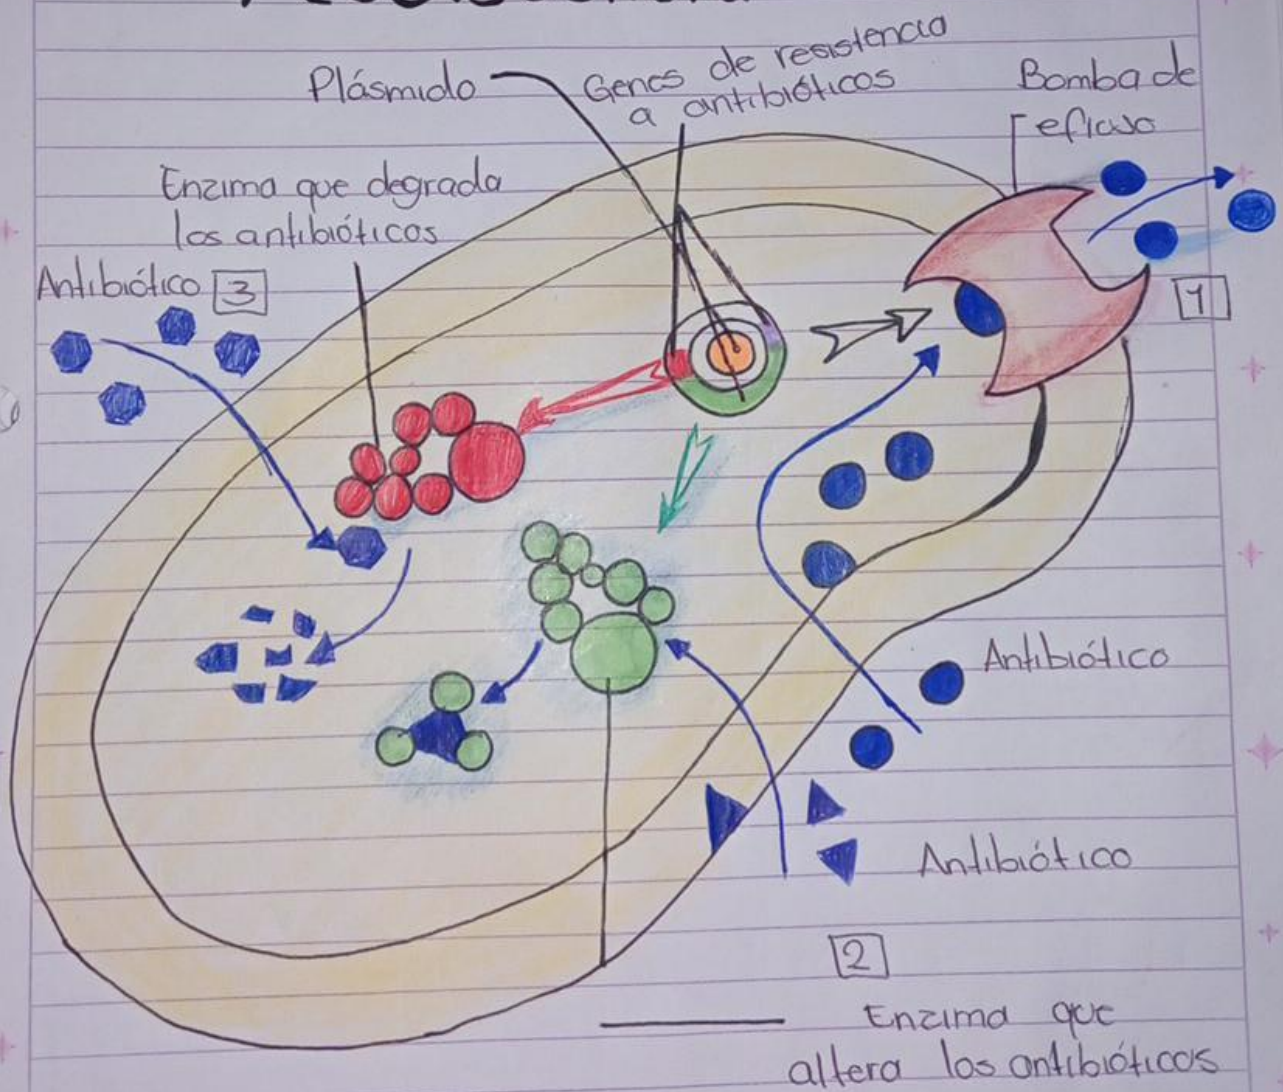 Plásmido
Genes de resistencia
a antibióticos
Bomba de
eflujo
Enzima que degrada
los antibióticos
Antibiótico 3
1
Antibiótico
Antibiótico
2
Enzima que
altera los antibióticos